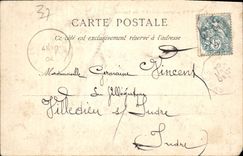 37
CARTE POSTALE
Ce côté est exclusivement réservé à l'adresse
Mademoiselle Germaine Vincent
Villedieu s/ Indre
Indre